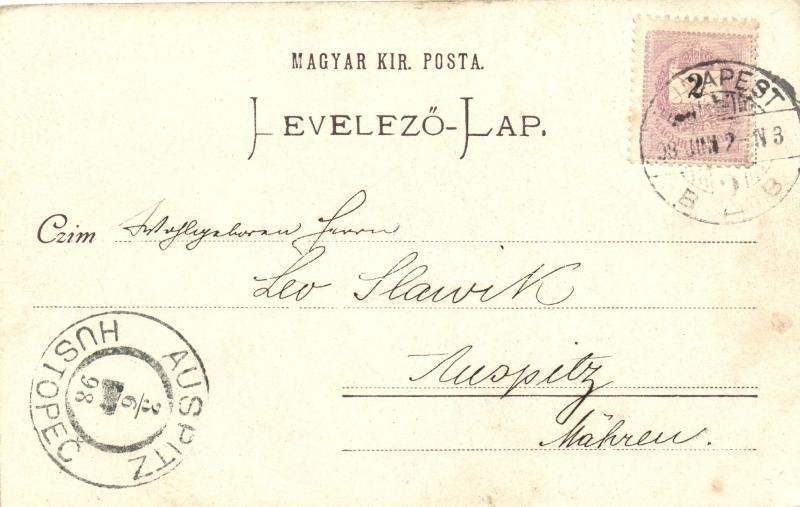 MAGYAR KIR. POSTA.
LEVELEZŐ-LAP.
2
BUDAPEST
98 JUN 2 N 3
B 2 B
Czim Wohlgeboren Herrn
Leo Slawik
Auspitz
Mähren.
AUSPITZ
HUSTOPEČ
3/6
98